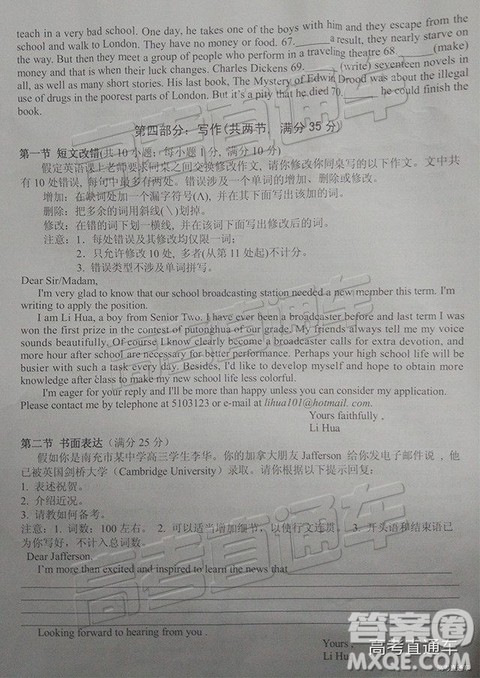 teach in a very bad school. One day, he takes one of the boys with him and they escape from the
school and walk to London. They have no money or food. 67.______a result, they nearly starve on
the way. But then they meet a group of people who perform in a traveling theatre 68.______(make)
money and that is when their luck changes. Charles Dickens 69.______(write) seventeen novels in
all, as well as many short stories. His last book, The Mystery of Edwin Drood was about the illegal
use of drugs in the poorest parts of London. But it's a pity that he died 70.______he could finish the
book.
第四部分：写作(共两节，满分 35 分)
第一节 短文改错(共 10 小题；每小题 1 分，满分 10 分)
假定英语课上老师要求同桌之间交换修改作文，请你修改你同桌写的以下作文。文中共
有 10 处错误，每句中最多有两处。错误涉及一个单词的增加、删除或修改。
增加：在缺词处加一个漏字符号(∧)，并在其下面写出该加的词。
删除：把多余的词用斜线(\)划掉。
修改：在错的词下划一横线，并在该词下面写出修改后的词。
注意：1. 每处错误及其修改均仅限一词；
2. 只允许修改 10 处，多者(从第 11 处起)不计分。
3. 错误类型不涉及单词拼写。
Dear Sir/Madam,
I'm very glad to know that our school broadcasting station needed a new member this term. I'm
writing to apply the position.
I am Li Hua, a boy from Senior Two. I have ever been a broadcaster before and last term I
won the first prize in the contest of putonghua of our grade. My friends always tell me my voice
sounds beautifully. Of course I know clearly become a broadcaster calls for extra devotion, and
more hour after school are necessary for better performance. Perhaps your high school life will be
busier with such a task every day. Besides, I'd like to develop myself and hope to obtain more
knowledge after class to make my new school life less colorful.
I'm eager for your reply and I'll be more than happy unless you can consider my application.
Please contact me by telephone at 5103123 or e-mail at lihua101@hotmail. com.
Yours faithfully ,
Li Hua
第二节 书面表达（满分 25 分）
假如你是南充市某中学高三学生李华。你的加拿大朋友 Jafferson 给你发电子邮件说，他
已被英国剑桥大学（Cambridge University）录取。请你根据以下提示回复：
1. 表述祝贺。
2. 介绍近况。
3. 请教如何备考。
注意：1. 词数：100 左右。 2. 可以适当增加细节，以使行文连贯。 3. 开头语和结束语已
为你写好，不计入总词数。
Dear Jafferson,
I'm more than excited and inspired to learn the news that______
Looking forward to hearing from you .
Yours ,
Li Hua
高考直通车
答案圈
MXQE.COM